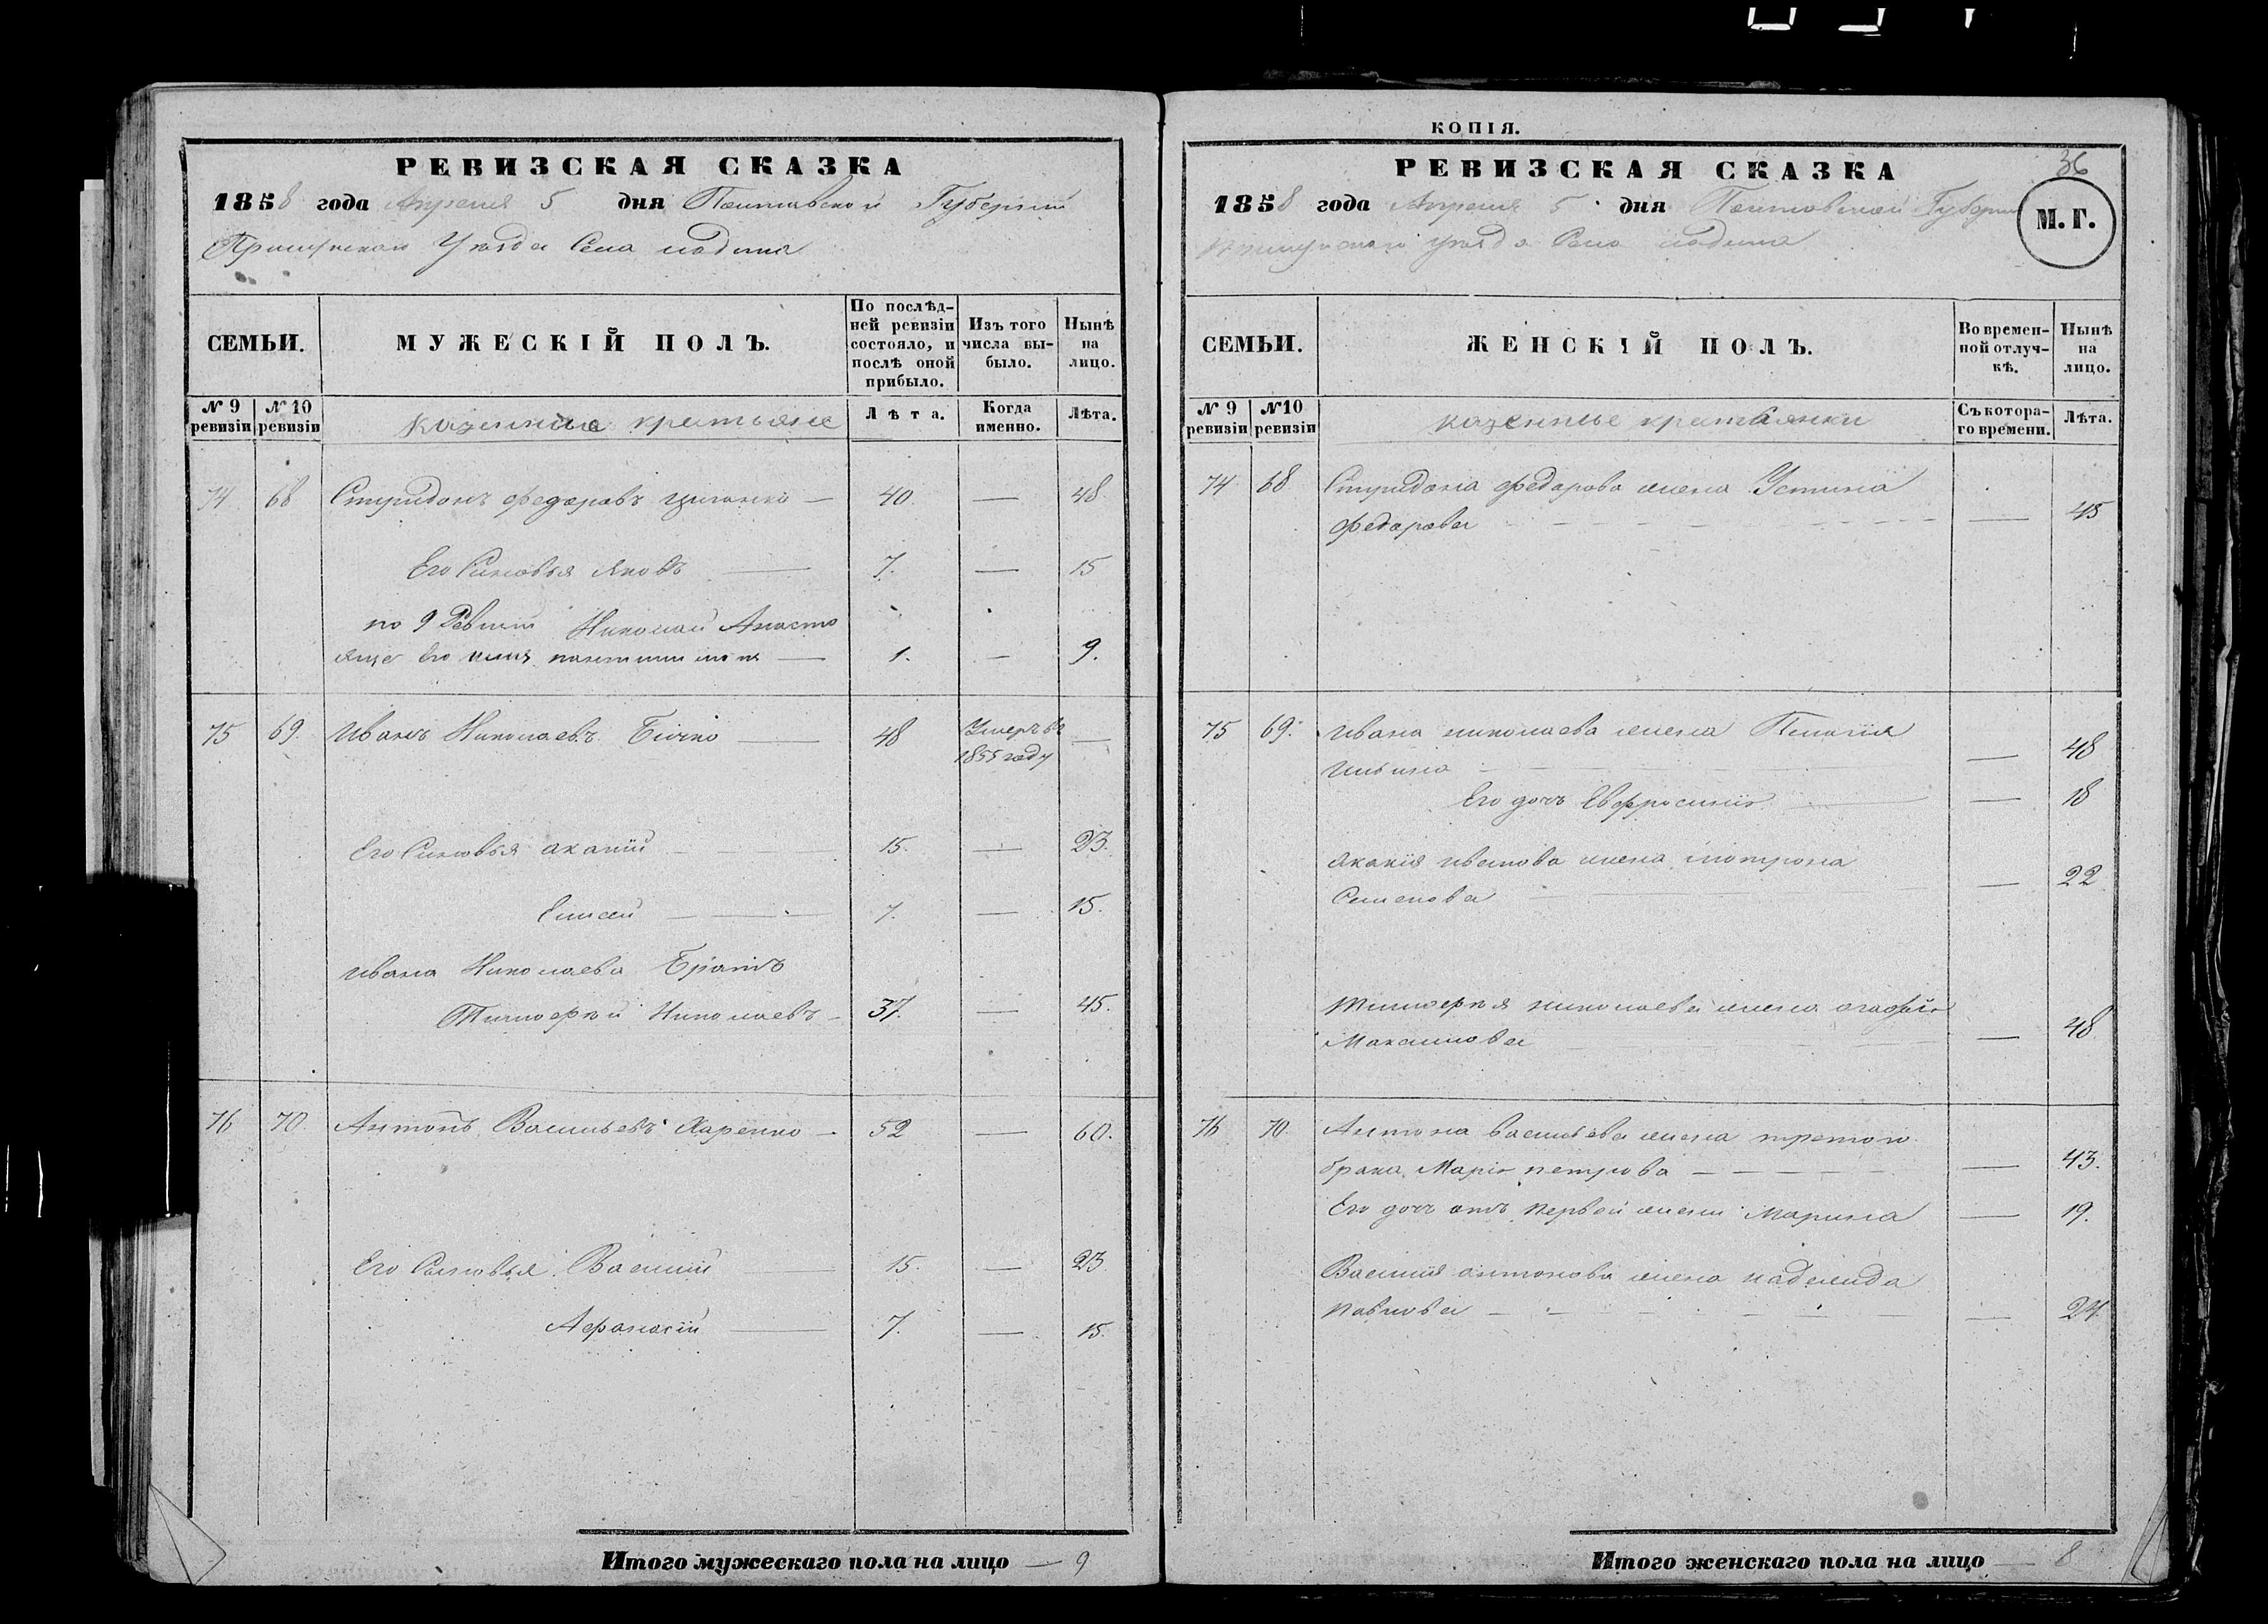 РЕВИЗСКАЯ СКАЗКА
1858 года Апреля 5 дня Полтавской Губернии
Уезда Села
СЕМЬИ.
МУЖЕСКІЙ ПОЛЪ.
По послѣд-
ней ревизіи
состояло, и
послѣ оной
прибыло.
Изъ того
числа вы-
было.
Нынѣ
на
лицо.
№ 9
ревизіи
№ 10
ревизіи
казенные крестьяне
Лѣта.
Когда
именно.
Лѣта.
74 68 Спиридонъ Федоровъ — 40. — 48
Его Сыновья Яковъ — 7. — 15
по 9 Ревизии Николай Анасто
его — 1. — 9.
75 69. Иванъ Николаевъ Бичко — 48 Умеръ въ —
1855 году
Его Сыновья акакий — 15. — 23.
Елисей — 7. — 15.
Ивана Николаева Братъ
Тимофей Николаевъ — 37. — 45.
76 70. Антонъ Васильевъ — 52 — 60.
Его Сыновья Василий — 15. — 23.
Афанасий — 7. — 15.
Итого мужескаго пола на лицо — 9
КОПІЯ.
36
РЕВИЗСКАЯ СКАЗКА
М. Г.
1858 года Апреля 5 дня Полтовской Губернии
уезда Села
СЕМЬИ.
ЖЕНСКІЙ ПОЛЪ.
Во времен-
ной отлуч-
кѣ.
Нынѣ
на
лицо.
№ 9
ревизіи
№ 10
ревизіи
казенные крестьянки
Съ котора-
го времени.
Лѣта.
74 68 Спиридона Федорова жена Устина
Федорова — — 45
75 69. Ивана николаева жена Пелагия
Ильина — — 48
Его дочь Евфросиния — — 18
Акакия иванова жена мотрона
Семенова — — 22
Тимофея николаева жена агафия
Максимова — — 48
76 70 Антона васильева жена третого
брака Мария петрова — — 43.
Его дочь отъ первой жены Марина — 19.
Василия антонова жена надежда
павлова — — 24.
Итого женскаго пола на лицо — 8